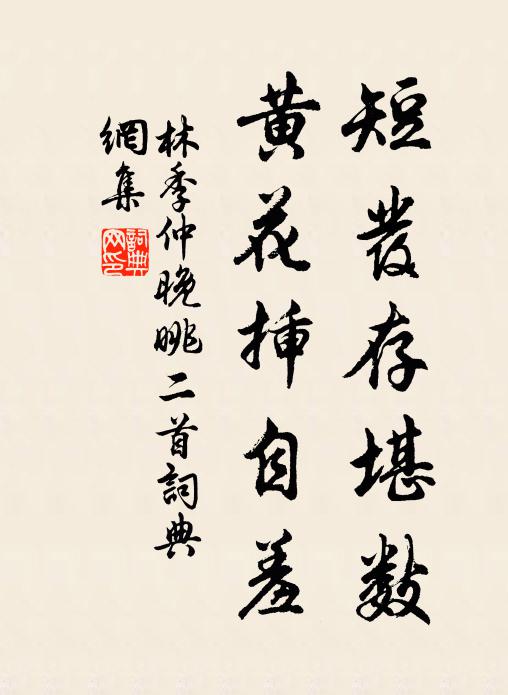 短發存堪數
黃花挿自羞
林季仲晚眺二首詞典
網集
詞典
网印